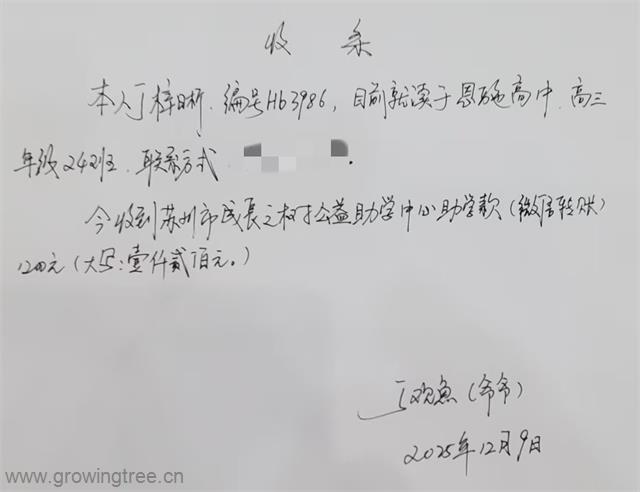 收 条
本人丁梓晰，编号Hb3986，目前就读于恩施高中，高三
年级242班，联系方式 .
今收到苏州市成长之树公益助学中心助学款（微信转账）
1200元（大写：壹仟贰佰元。）
丁欢鱼（爷爷）
2025年12月9日
www.growingtree.cn